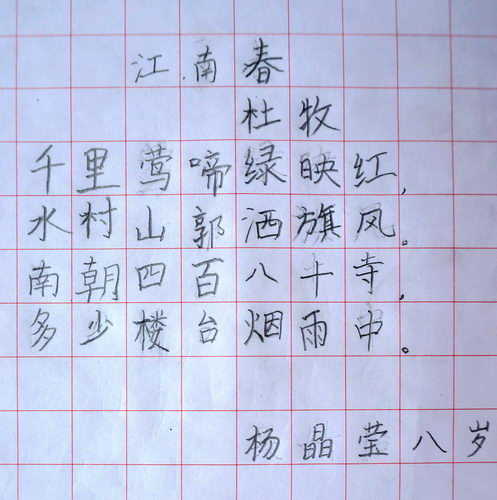 江南春
杜牧
千里莺啼绿映红,
水村山郭洒旗风。
南朝四百八十寺,
多少楼台烟雨中。
杨晶莹八岁